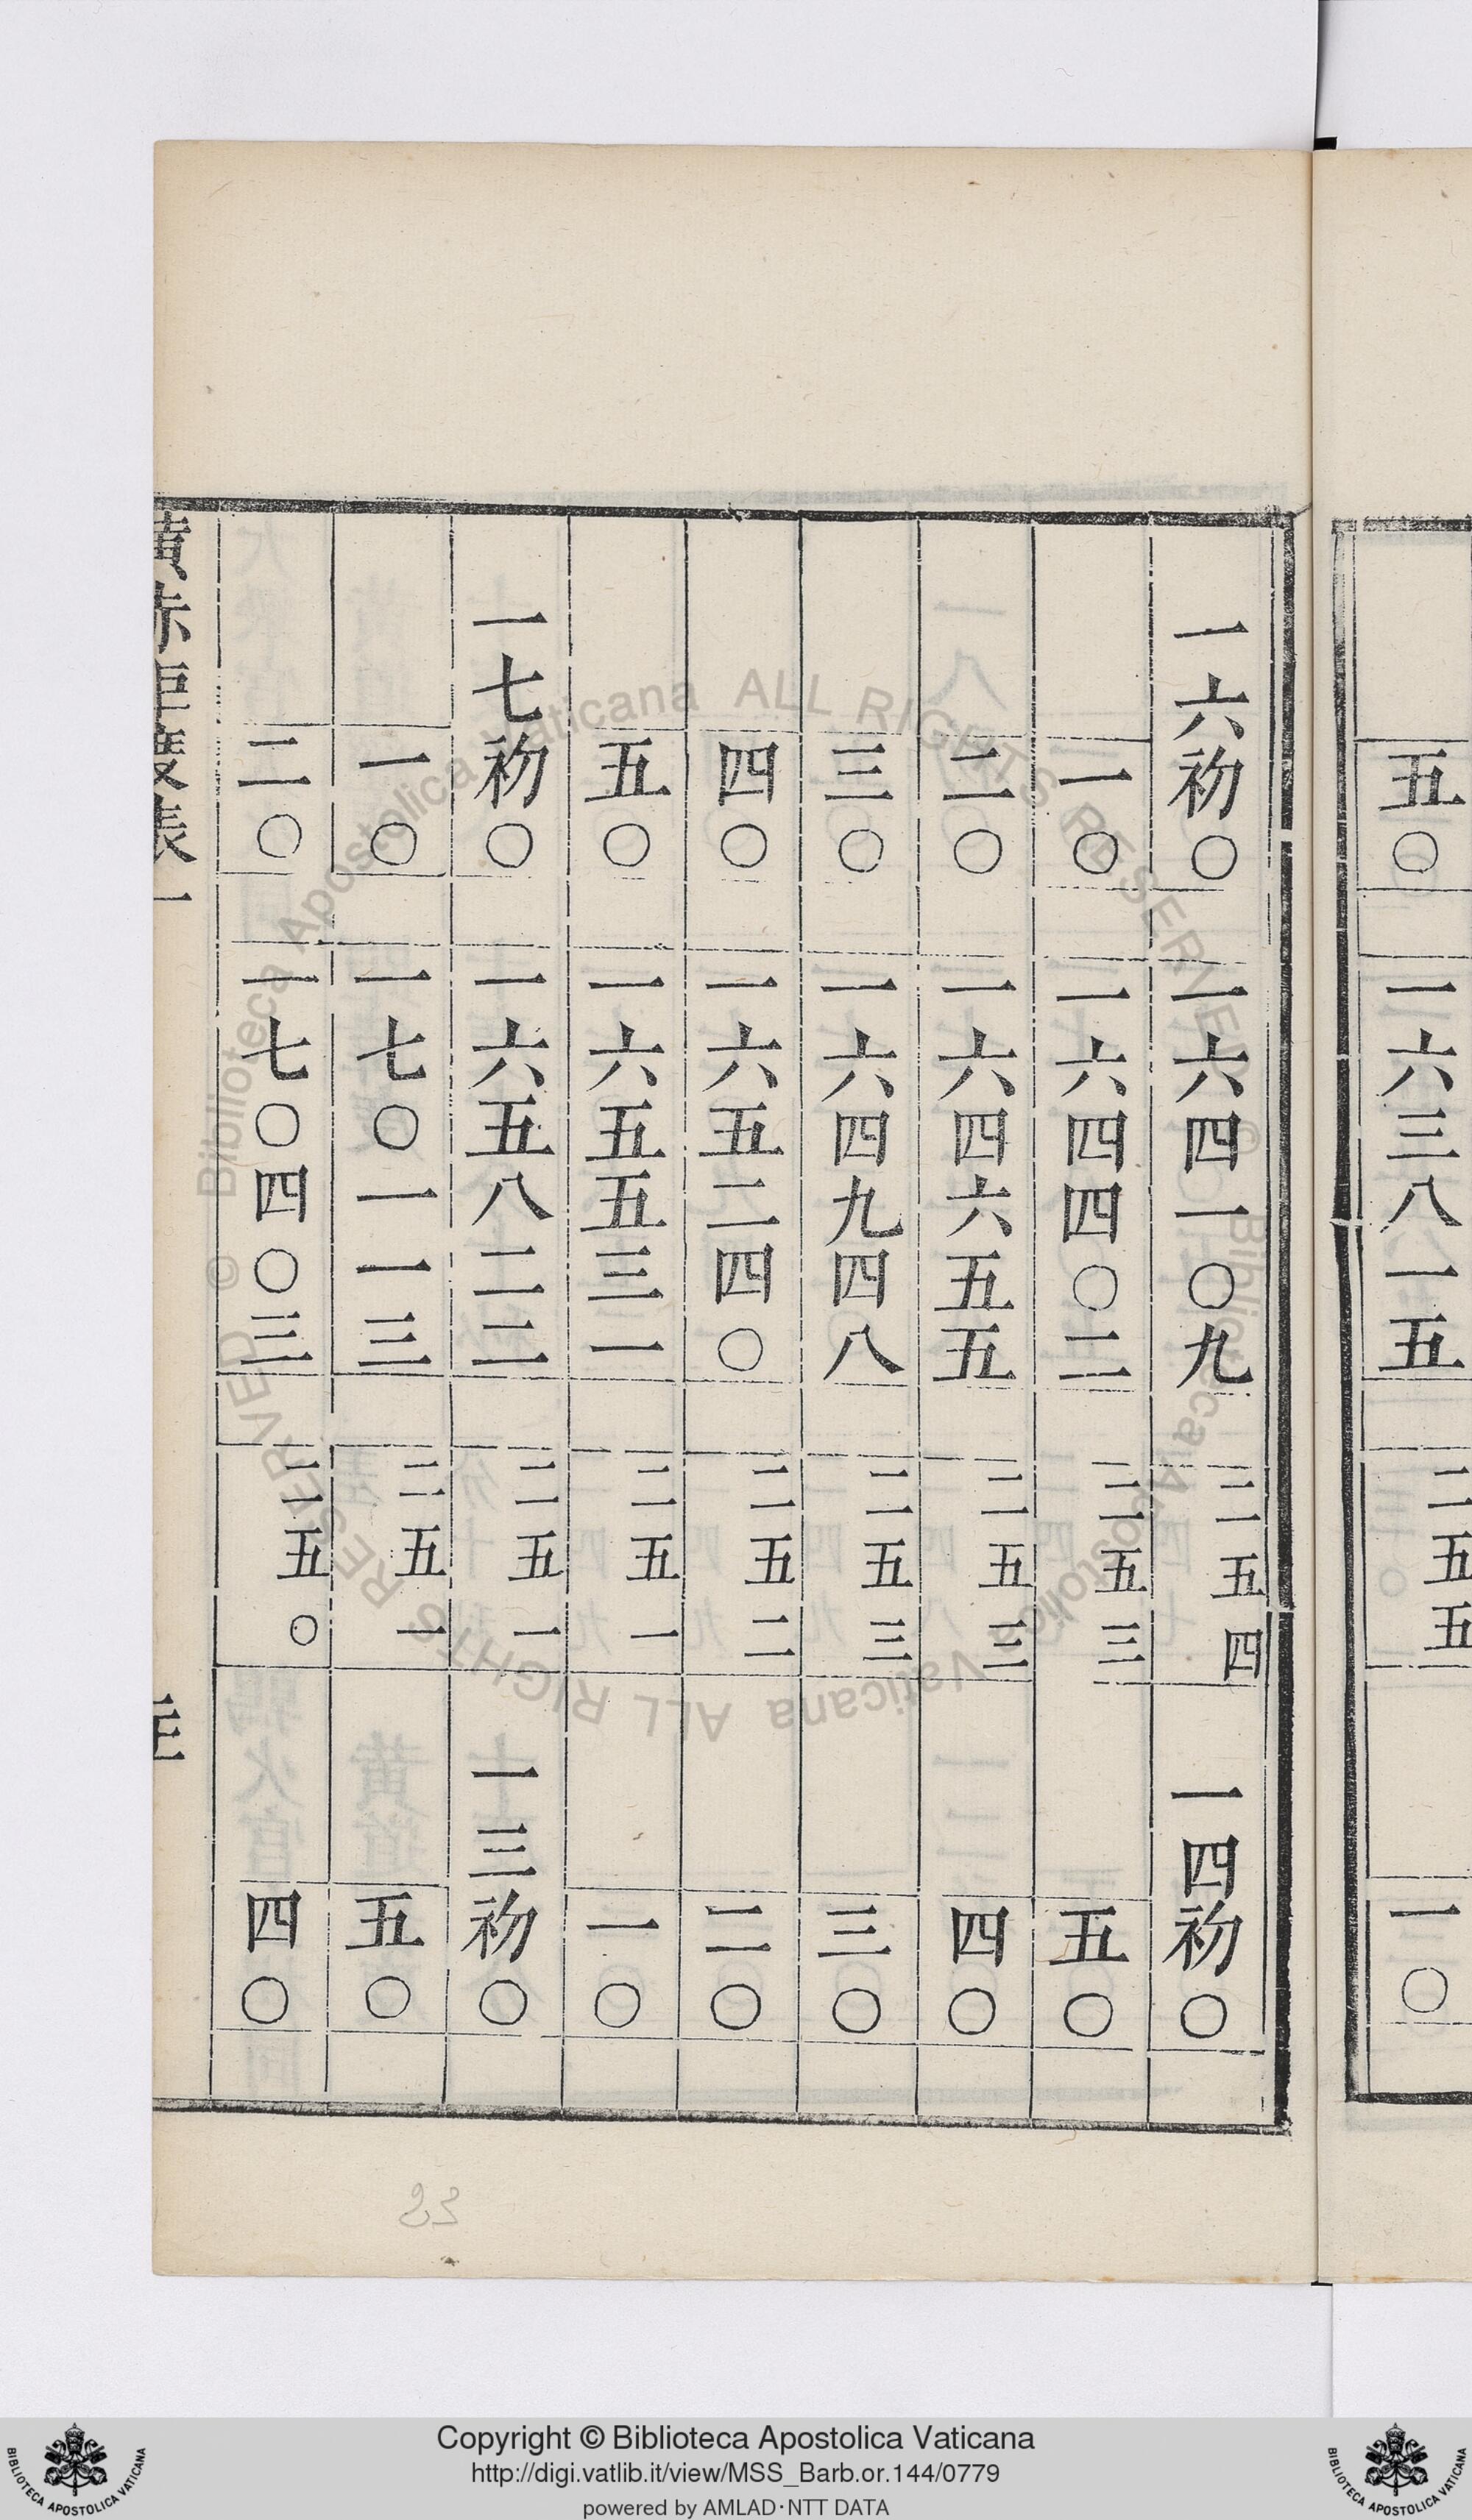 五〇 一六三八一五 二二五五 一〇
一六初〇 一六四一〇九 二二五四 一四初〇
一〇 一六四四〇二 二二五三 五〇
二〇 一六四六五五 二二五三 四〇
三〇 一六四九四八 二二五三 三〇
四〇 一六五二四〇 二二五二 二〇
五〇 一六五五三一 二二五一 一〇
一七初〇 一六五八二二 二二五一 一三初〇
一〇 一七〇一一三 二二五一 五〇
二〇 一七〇四〇三 二二五〇 四〇
黄赤距度表一
23
Copyright © Biblioteca Apostolica Vaticana
http://digi.vatlib.it/view/MSS_Barb.or.144/0779
powered by AMLAD·NTT DATA